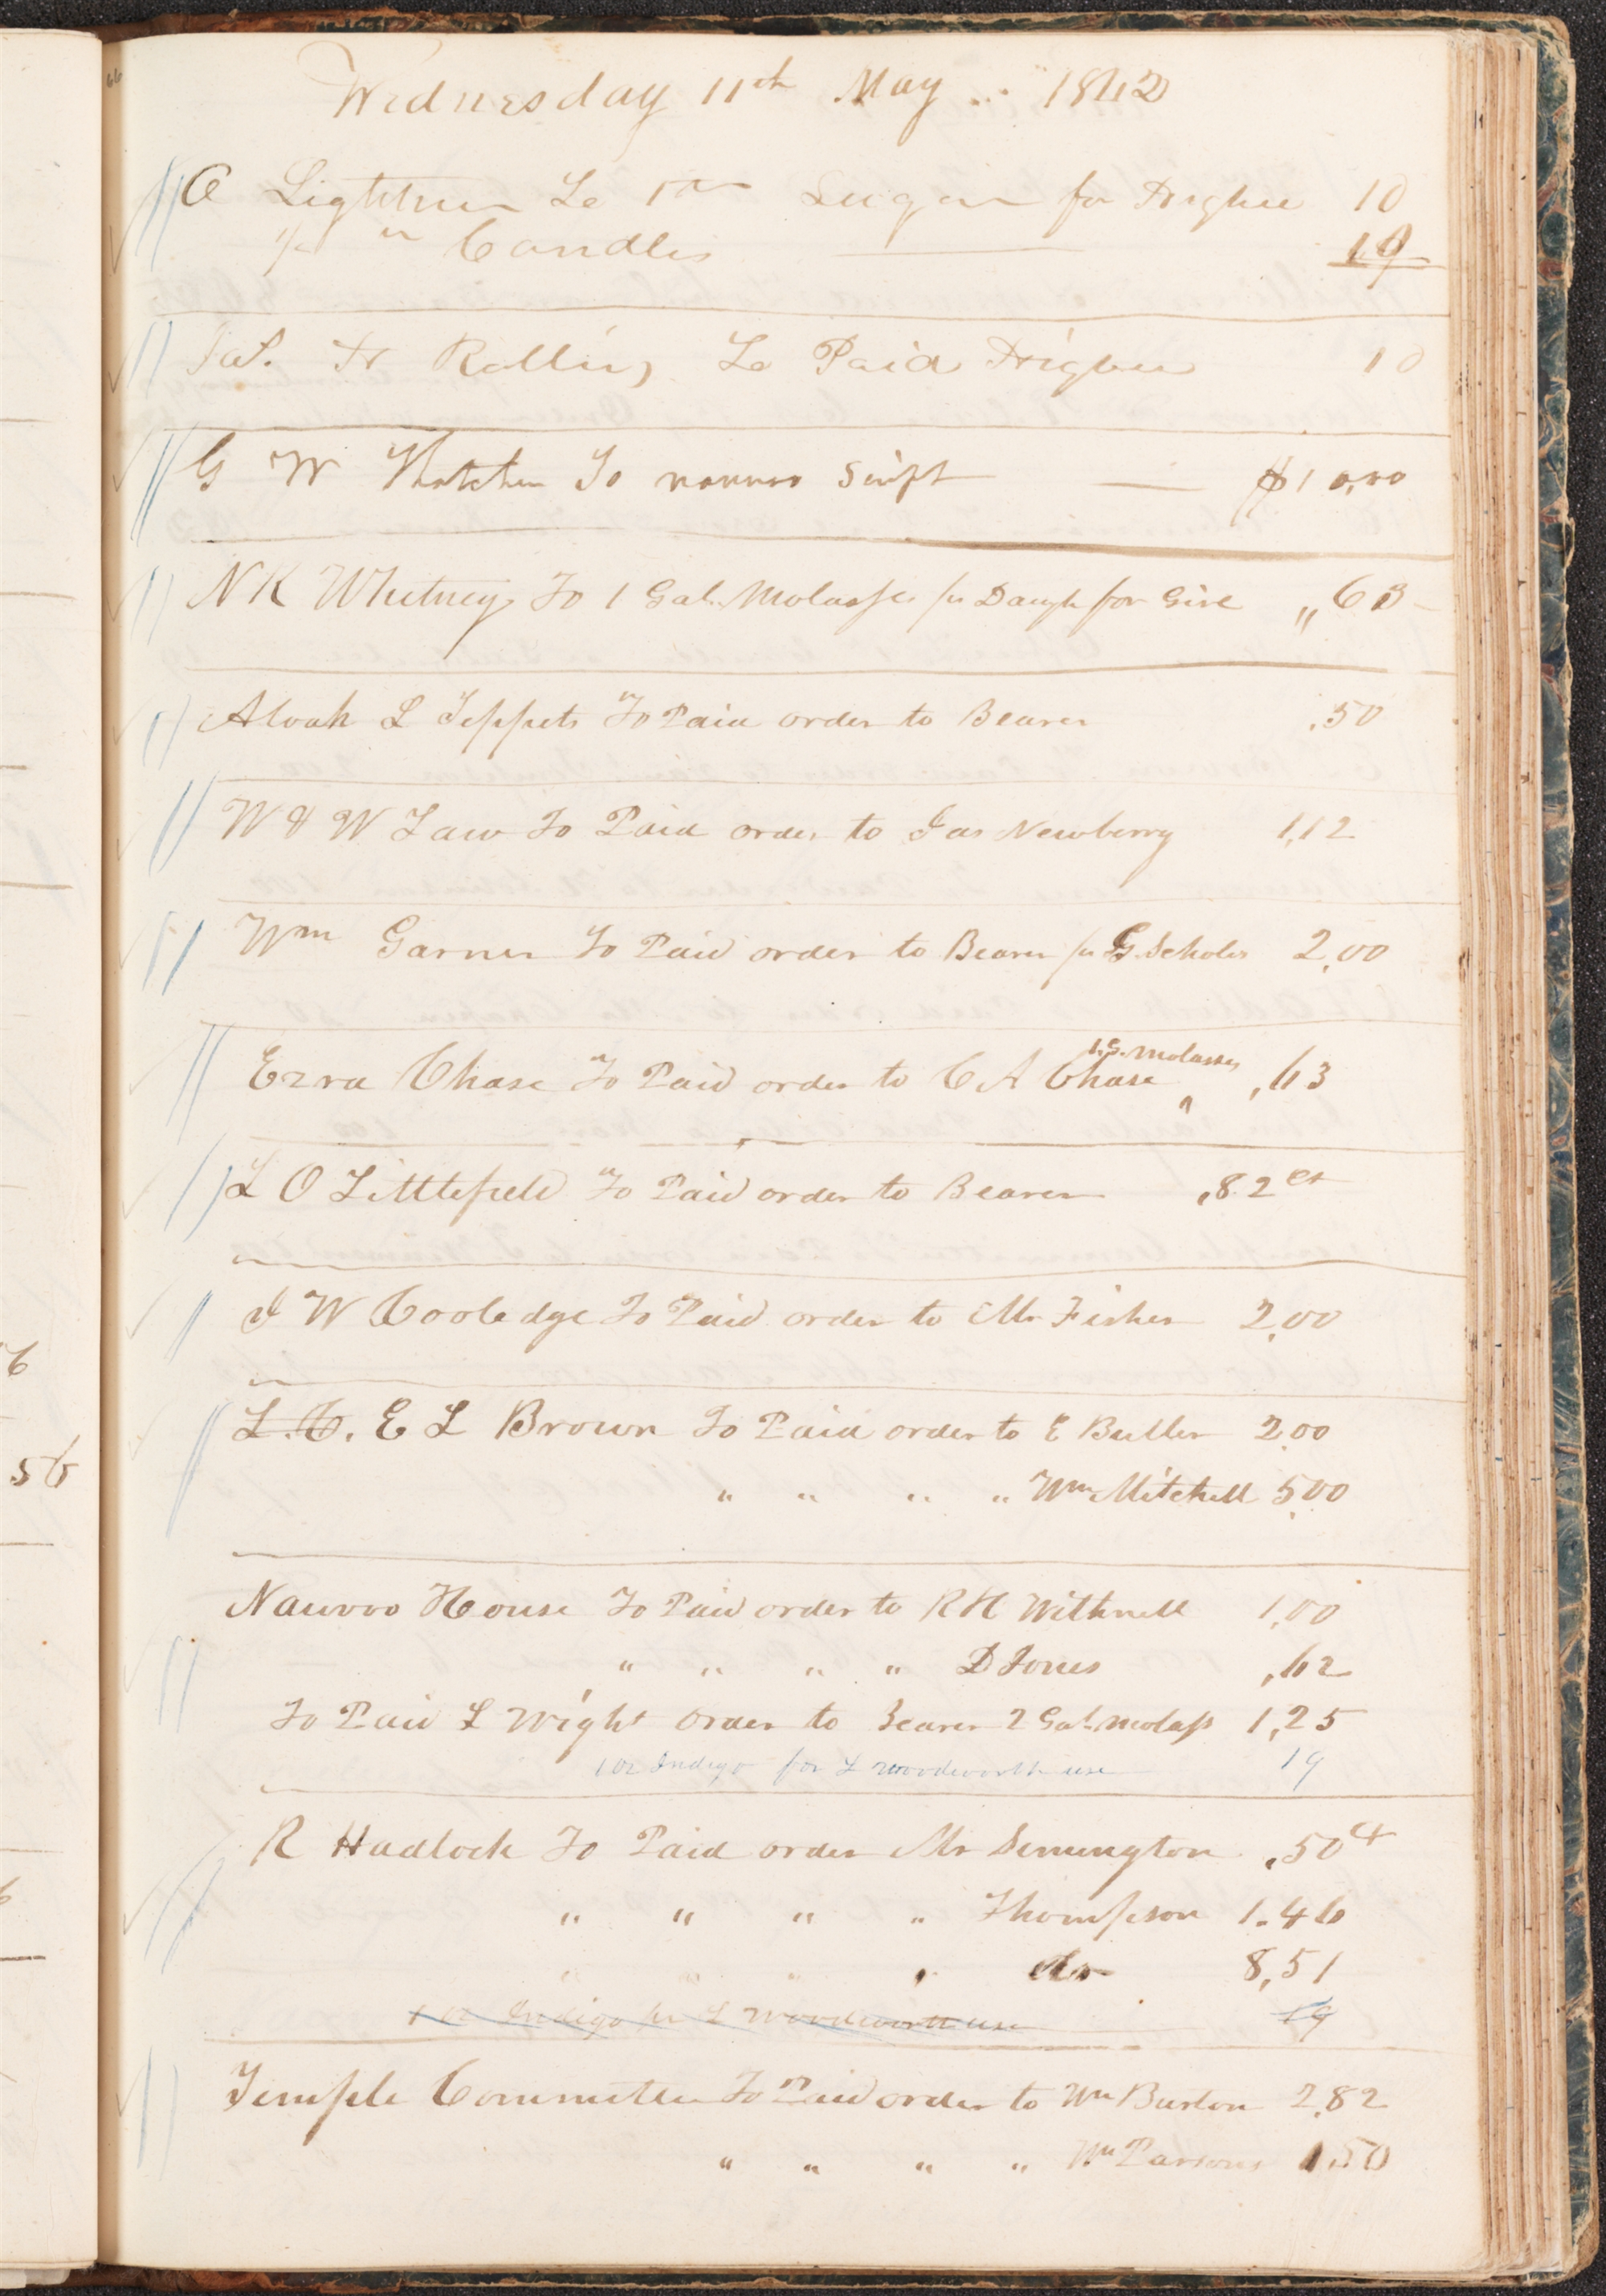 66
Wednesday 11th May .. 1842
A Lightner To 1 lb Sugar for Higbee 10
1/2 " Candles 19
Jas. H Rollins To Paid Higbee 10
G W Thatcher To nauvoo Script $10,00
N K Whitney To 1 Gal. Molasses pr Daugh for Girl " 63
Alvah L Teppets To Paid order to Bearer .50
W & W Law To Paid order to Jas Newberry 1,12
Wm Garner To Paid order to Bearer pr G. Scholes 2,00
1. G. Molasses
Ezra Chase To Paid order to C A Chase ^ ,63
L O Littlefield To Paid order to Bearer ,82 cts
J W Cooledge To Paid order to Mr Fisher 2,00
L. C. E L Brown To Paid order to E Butler 2,00
" " " " Wm Mitchell 5,00
Nauvoo House To Paid order to R H Withnell 1,00
" " " " D Jones ,62
To Paid L Wight order to Bearer 2 Gal. Molass 1,25
1 oz Indigo for L Woodworth use 19
R Hadlock To Paid order Mr Simington .50 ct
" " " " Thompson 1.46
" " " " Do 8,51
1 oz Indigo for L Woodworth use 19
Temple Committee To Paid order to Wm Burton 2,82
" " " " Wm Parsons 1.50
6
56
6